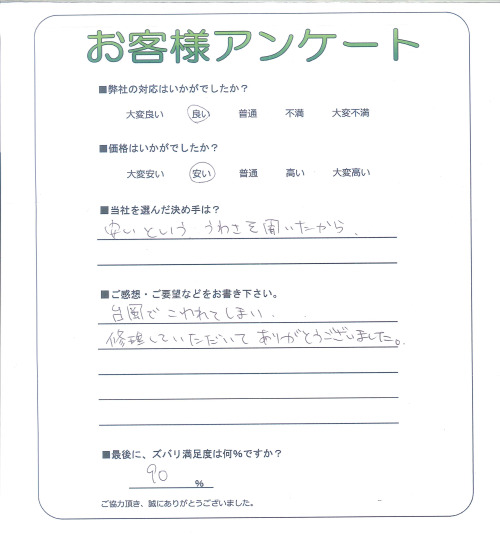 お客様アンケート
■弊社の対応はいかがでしたか？
大変良い 良い 普通 不満 大変不満
■価格はいかがでしたか？
大変安い 安い 普通 高い 大変高い
■当社を選んだ決め手は？
安いという うわさを聞いたから.
■ご感想・ご要望などをお書き下さい。
台風でこわれてしまい.
修理していただいてありがとうございました。
■最後に、ズバリ満足度は何%ですか？
90 %
ご協力頂き、誠にありがとうございました。